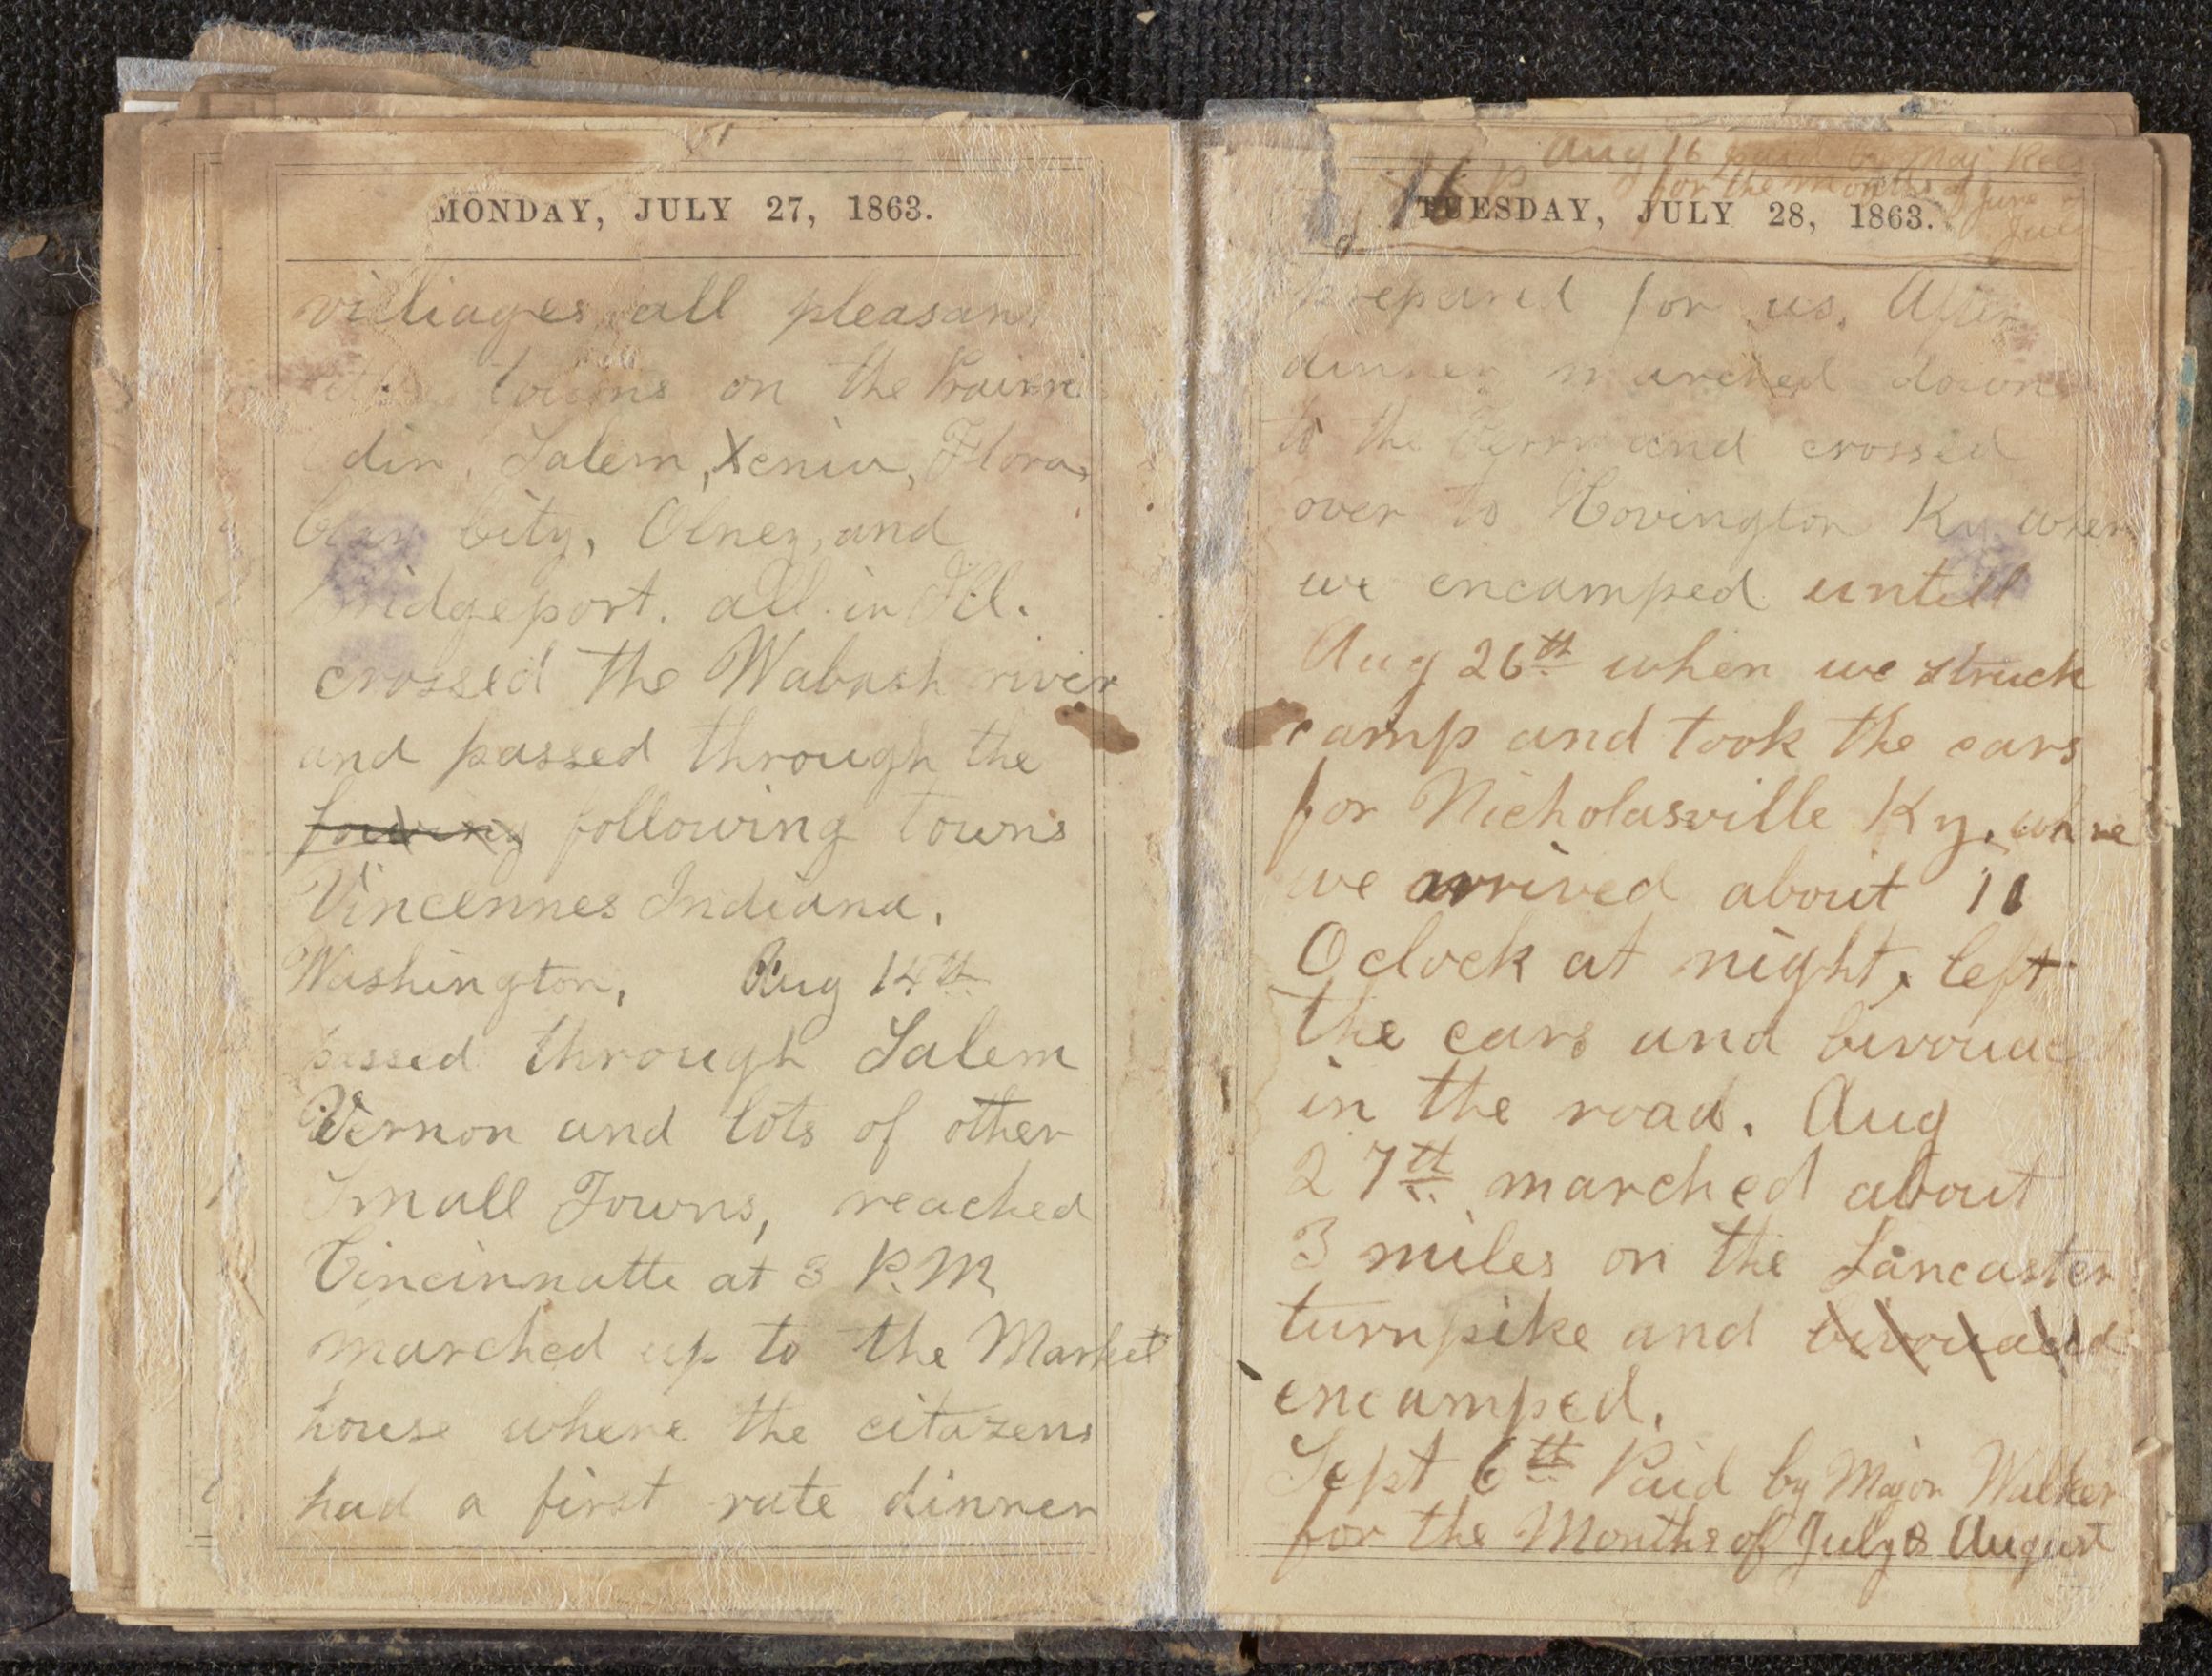 MONDAY, JULY 27, 1863.
villiages all pleasan
towns on the Prairi
din, Salem, Xenia, Flora,
City, Olney, and
ridgeport. all in Ill.
crossed the Wabash river
and passed through the
following towns
Vincennes Indiana.
Washington, Aug 14th
passed through Salem
Vernon and lots of other
Small Towns, reached
Cincinnatte at 3 P.M
marched up to the Market
house where the citazens
had a first rate dinner
Aug 16 paid by Maj
for the months of June
July
16
TUESDAY, JULY 28, 1863.
prepared for us. After
dinner marched down
to the Ferry and crossed
over to Covington Ky. wher
we encamped untill
Aug 26th when we struck
camp and took the cars
for Nicholasville Ky, where
we arrived about 11
Oclock at night, left
the cars and bivouac
in the road. Aug
27th marched about
3 miles on the Lancaster
turnpike and bivouaced
encamped.
Sept 6th Paid by Major Walker
for the Months of July & August